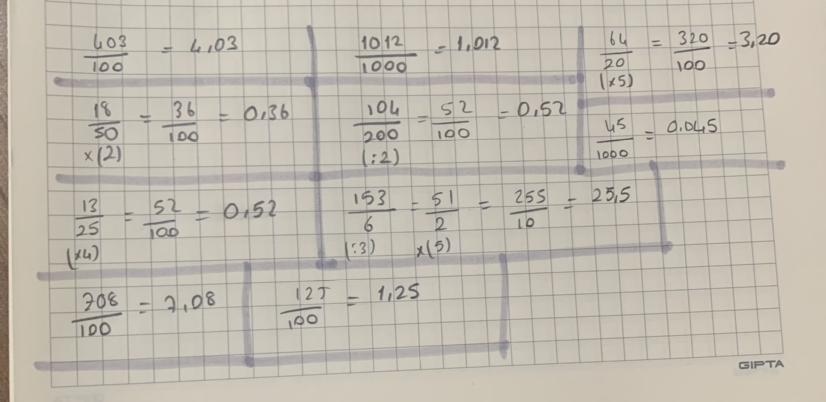 403/100 = 4,03
1012/1000 = 1,012
64/20 = 320/100 = 3,20
(x5)
18/50 = 36/100 = 0,36
x(2)
104/200 = 52/100 = 0,52
(:2)
45/1000 = 0.045
13/25 = 52/100 = 0,52
(x4)
153/6 = 51/2 = 255/10 = 25,5
(:3) x(5)
708/100 = 7,08
125/100 = 1,25
GIPTA